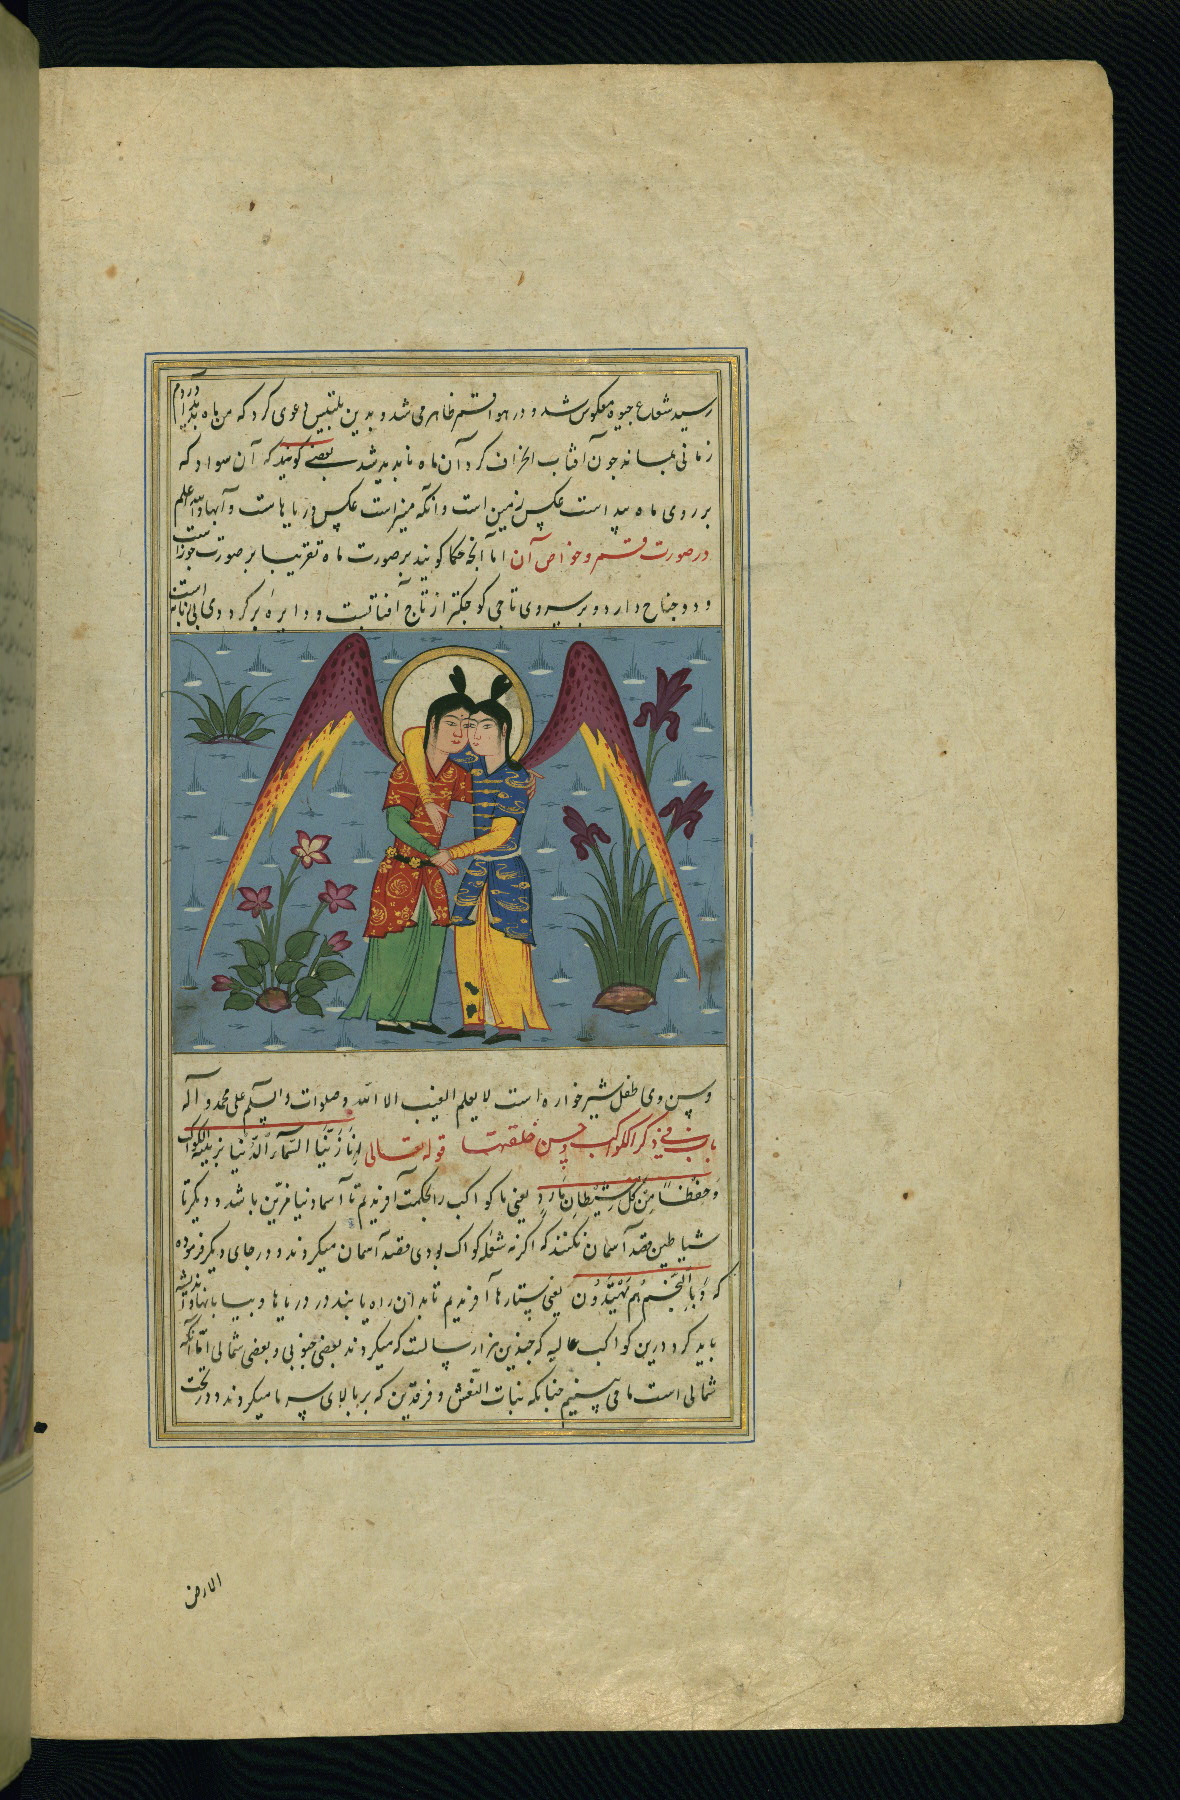 رسید شعاع جیوه معکوس شد و در هوا قمر ظاهر می شد و بدین تلبیس دعوی کرد که من ماه بدید آوردم
زمانی بمانه جون آفتاب انحراف کرد آن ماه نابدید شد بعضی کویند که آن سواد که
بر روی ماه پیداست عکس زمین است و آنکه منیر است عکس دریاهاست و آبها والله اعلم
در صورت قمر و خواص آن اما آنجه حکما کویند بر صورت ماه تقریبا بر صورت جوزاست
و دو جناح دارد و بر سر وی تاجی کوجکتر از تاج آفتابست و دایرهٔ بر کرد وی
و پس وی طفل شیرخواره است لا یعلم الغیب الا الله و صلوات والسلم علی محمد و آله
باب فی ذکر الکواکب و حسن خلقتها قوله تعالی انا زینا السمآء الدنیا بزینة الکواکب
وحفظا من کل شیطان مارد یعنی ما کواکب را بحکمت آفریدیم تا آسما دنیا مزین باشد و دیکر تا
شیاطین قصد آسمان نکنند که اکر نه شعلهٔ کواکب بودی قصد آسمان میکردند و در جای دیکر فرموده
که وبالنجم هم یهتدون یعنی ستارها آفریدیم تا بدان راه یابند در دریاها و بیابانها و اندیشه
باید کرد درین کواکب عالیه که جندین هزار سالست که میکردند بعضی جنوبی و بعضی شمالی اما آنکه
شمالی است ما می بینیم جنانکه بنات النعش و فرقدین که بر بالای سر ما میکردند و در تحت
الارض